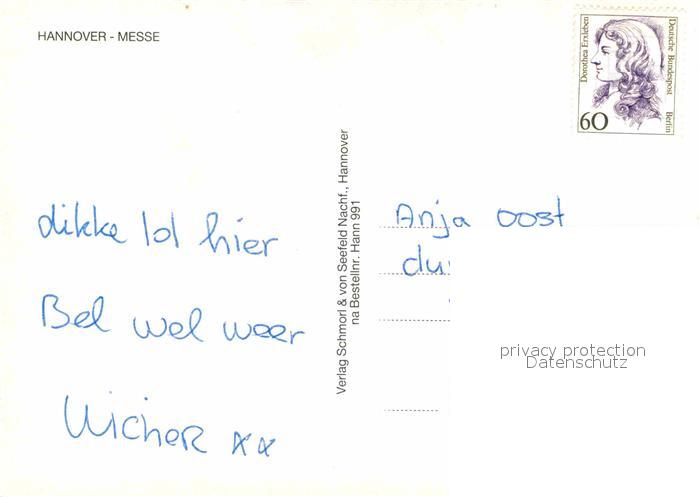 HANNOVER - MESSE
Dorothea Erxleben
Deutsche Bundespost Berlin
60
dikke lol hier
Bel wel weer
Wicher xx
Verlag Schmorl & von Seefeld Nachf., Hannover
na Bestellnr. Hann 991
Anja oost
privacy protection
Datenschutz